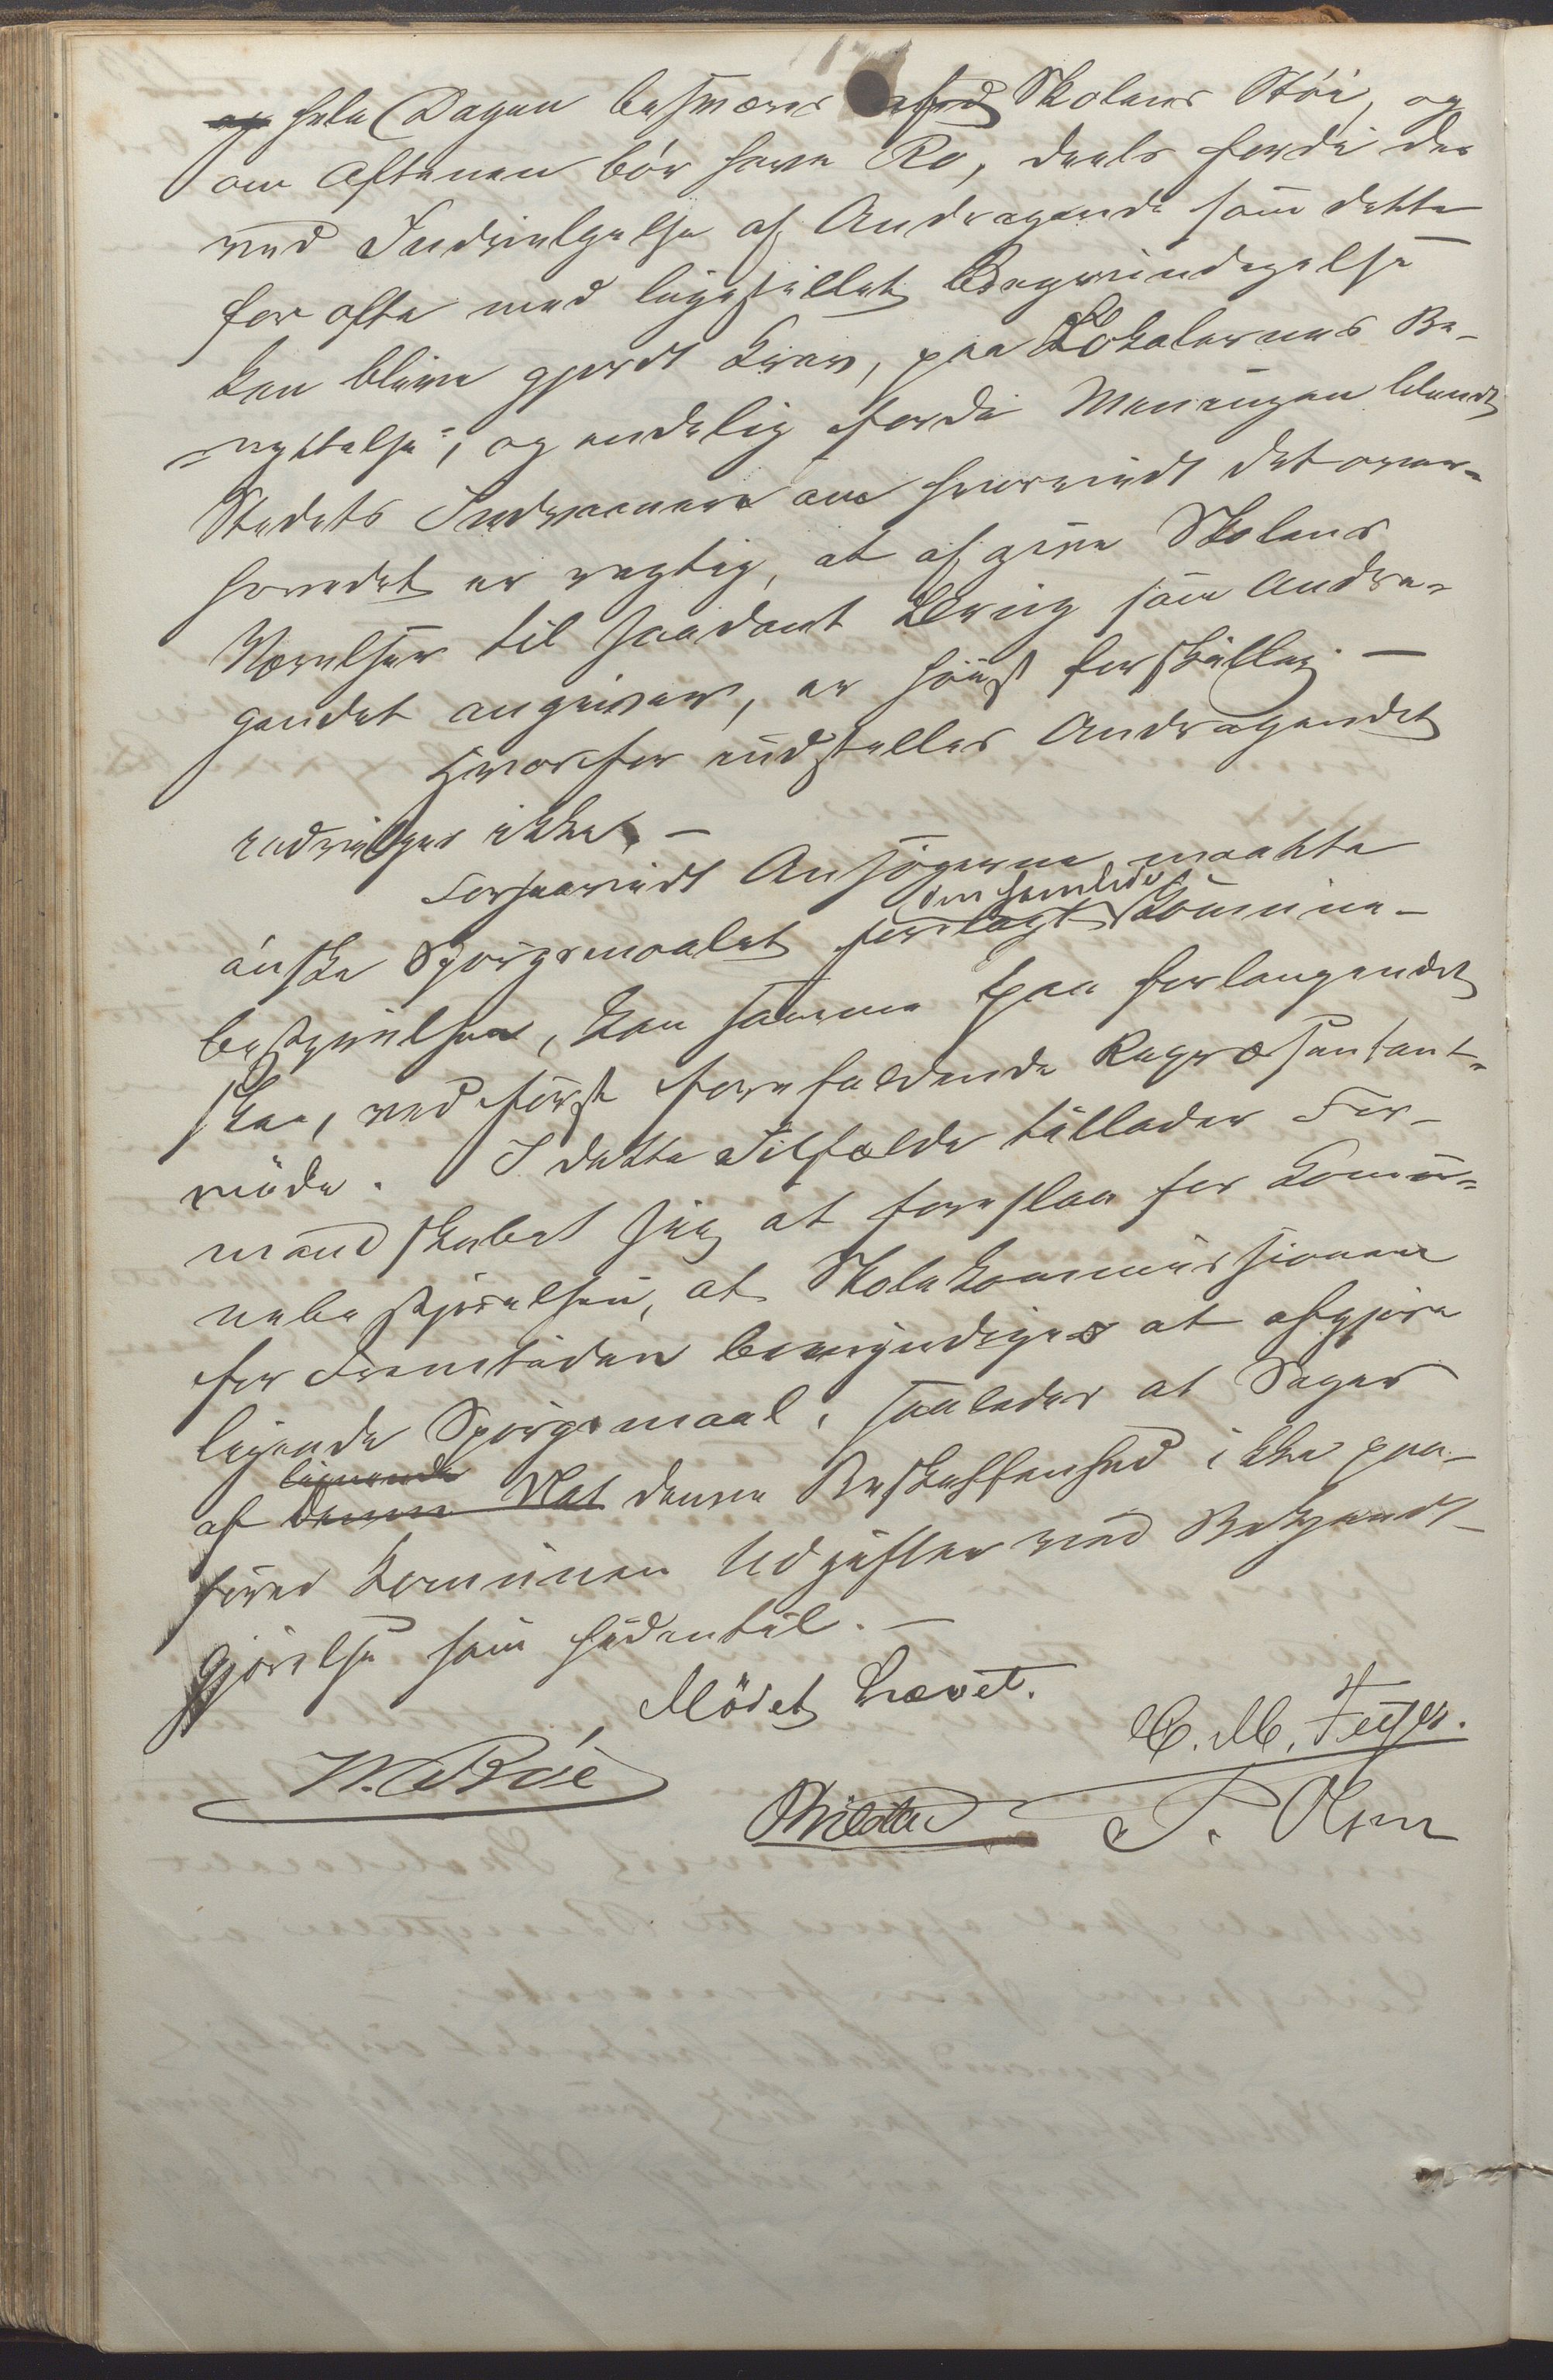 og hele Dagen besværes af Skolens Støi, og
om Aftenen bör have Ro, deels fordi der
ved Indvilgelse af Andragende som dette
for ofte med ligestillet Begrundegelse
kan blive gjordt Krav, paa Lokalernes Be-
nyttelse, og endelig fordi Meningen blandt
Stedets Indvaanere om hvorvidt det over-
hovedet er rigtig, at afgive Skolens
Værelser til saadant Brug som Andra-
gendet angiver, er höist forskjellig. -
Hvorfor indstilles Andragendet
indvilges ikke. -
Forsaavidt Ansögerne maatte
önske Spörgsmaalet forelagt den samlede Kommune-
bestyrelse, kan samme paa forlangende
skee, ved först forefaldende Repræsentant-
möde. I dette Tilfælde tillader For-
mandskabet sig at foreslaa for Kommu-
nebestyrelsen, at Skolekommissionen
for Fremtiden bemyndiges at afgjöre
lignende Spörgsmaal, saaledes at Sager
af lignende denne Nat denne Beskaffenhed ikke paa-
förer Kommunen Udgifter ved Bekjendt-
gjörelse som hidentil. -
Mödet hævet.
C. M. Feyer.
T. Olsen